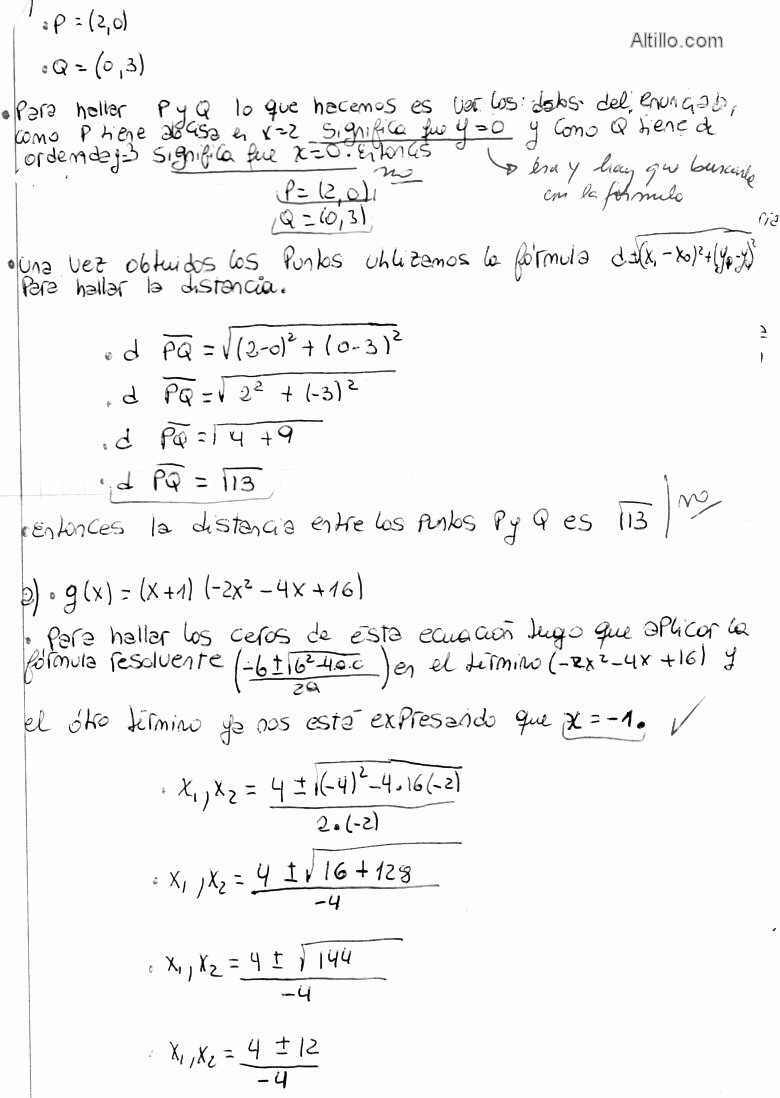 1
• P = (2,0)
Altillo.com
• Q = (0,3)
• Para hallar P y Q lo que hacemos es ver los datos del enunciado,
como P tiene abcisa en x=2 significa que y=0 y como Q tiene de
ordenada y=3 significa que x=0. Entonces
no
era y hay que buscarle
con la fórmula
P = (2,0)
Q = (0,3)
• Una vez obtuidos los Puntos utilizamos la fórmula d = √(x₁ - x₀)² + (y₀-y₁)²
Para hallar la distancia.
• d PQ = √(2-0)² + (0-3)²
• d PQ = √2² + (-3)²
• d PQ = √4 + 9
• d PQ = √13
• Entonces la distancia entre los Puntos P y Q es √13 no
2) • g(x) = (x+1) (-2x² - 4x + 16)
• Para hallar los ceros de esta ecuación tengo que aplicar la
fórmula resolvente (-b ± √b² - 4.a.c / 2a) en el término (-2x² - 4x + 16) y
el ótro término ya nos está expresando que x = -1. ✓
• x₁, x₂ = 4 ± √(-4)² - 4.16(-2)
2.(-2)
• x₁, x₂ = 4 ± √16 + 128
-4
• x₁, x₂ = 4 ± √144
-4
• x₁, x₂ = 4 ± 12
-4